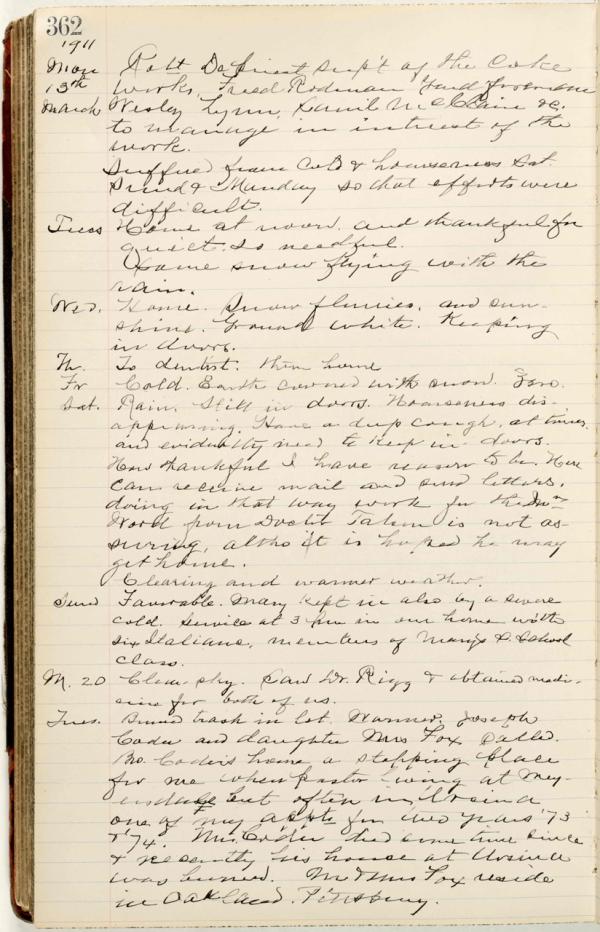 362
1911
Mon Robt De Priest sup't of the Coke
13th works, Fred Rodman Yard foreman
March Wesley Lynn, Saml McClain &c.
to manage in interest of the
work.
Suffered from Cold & hoarseness Sat.
Sund & Munday so that efforts were
difficult.
Tues Home at noon, and thankful for
quiet. So needful.
Some snow flying with the
rain.
Wed. Home. Snow flurries, and sun-
shine. Ground white. Keeping
in doors.
Th. To dentist. then home
Fr Cold. Earth covered with snow.
Sat. Rain. Still in doors. Hoarseness dis-
appearing. Have a deep cough, at times,
and evidently need to keep in doors.
How thankful I have reason to be. Here
can receive mail and send letters,
doing in that way work for the
Word from Doctor is not as-
suring, altho it is hoped he may
get home.
Clearing and warmer weather.
Sund Favorable. Mary kept in also by a severe
cold. Service at 3 pm in our home with
six Italians, members of Mary's S. School
class.
M. 20 Clear sky. Saw Dr. Rigg & obtained medi-
cine for both of us.
Tues. Burned trash in lot. Warmer. Joseph
Coder and daughter Mrs Fox called.
Bro. Coder's home a stopping place
for me when pastor living at Mey-
ersdale but often in Ursina
one of my appts for two years '73
& '74. Mrs. Coder died some time since
& recently his house at Ursina
was burned. Mr & Mrs Fox reside
in Oakland. Pittsburg.